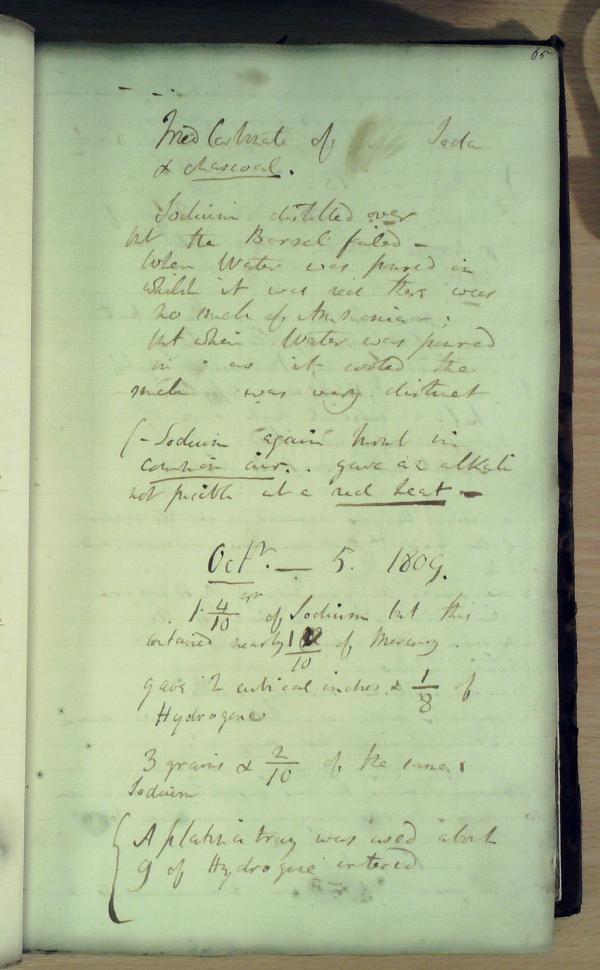 65
Tried Carbonate of Soda
& charcoal.
Sodium distilled over
but the Barrel failed –
When Water was poured in
whilst it was red there was
no smell of Ammonia – ;
but when Water was poured
in as it cooled the
smell was very distinct
(– Sodium again burnt in
common air. . gave an alkali
not fusible at a red heat –
Octr. — 5. 1809.
1. 4/10 grs of Sodium but this
contained nearly /10 of Mercury.
gave 2 cubical inches & 1/8 of
Hydrogene
3 grains & 2/10 of the same
Sodium
{ A platina tray was used about
9 of Hydrogene entered